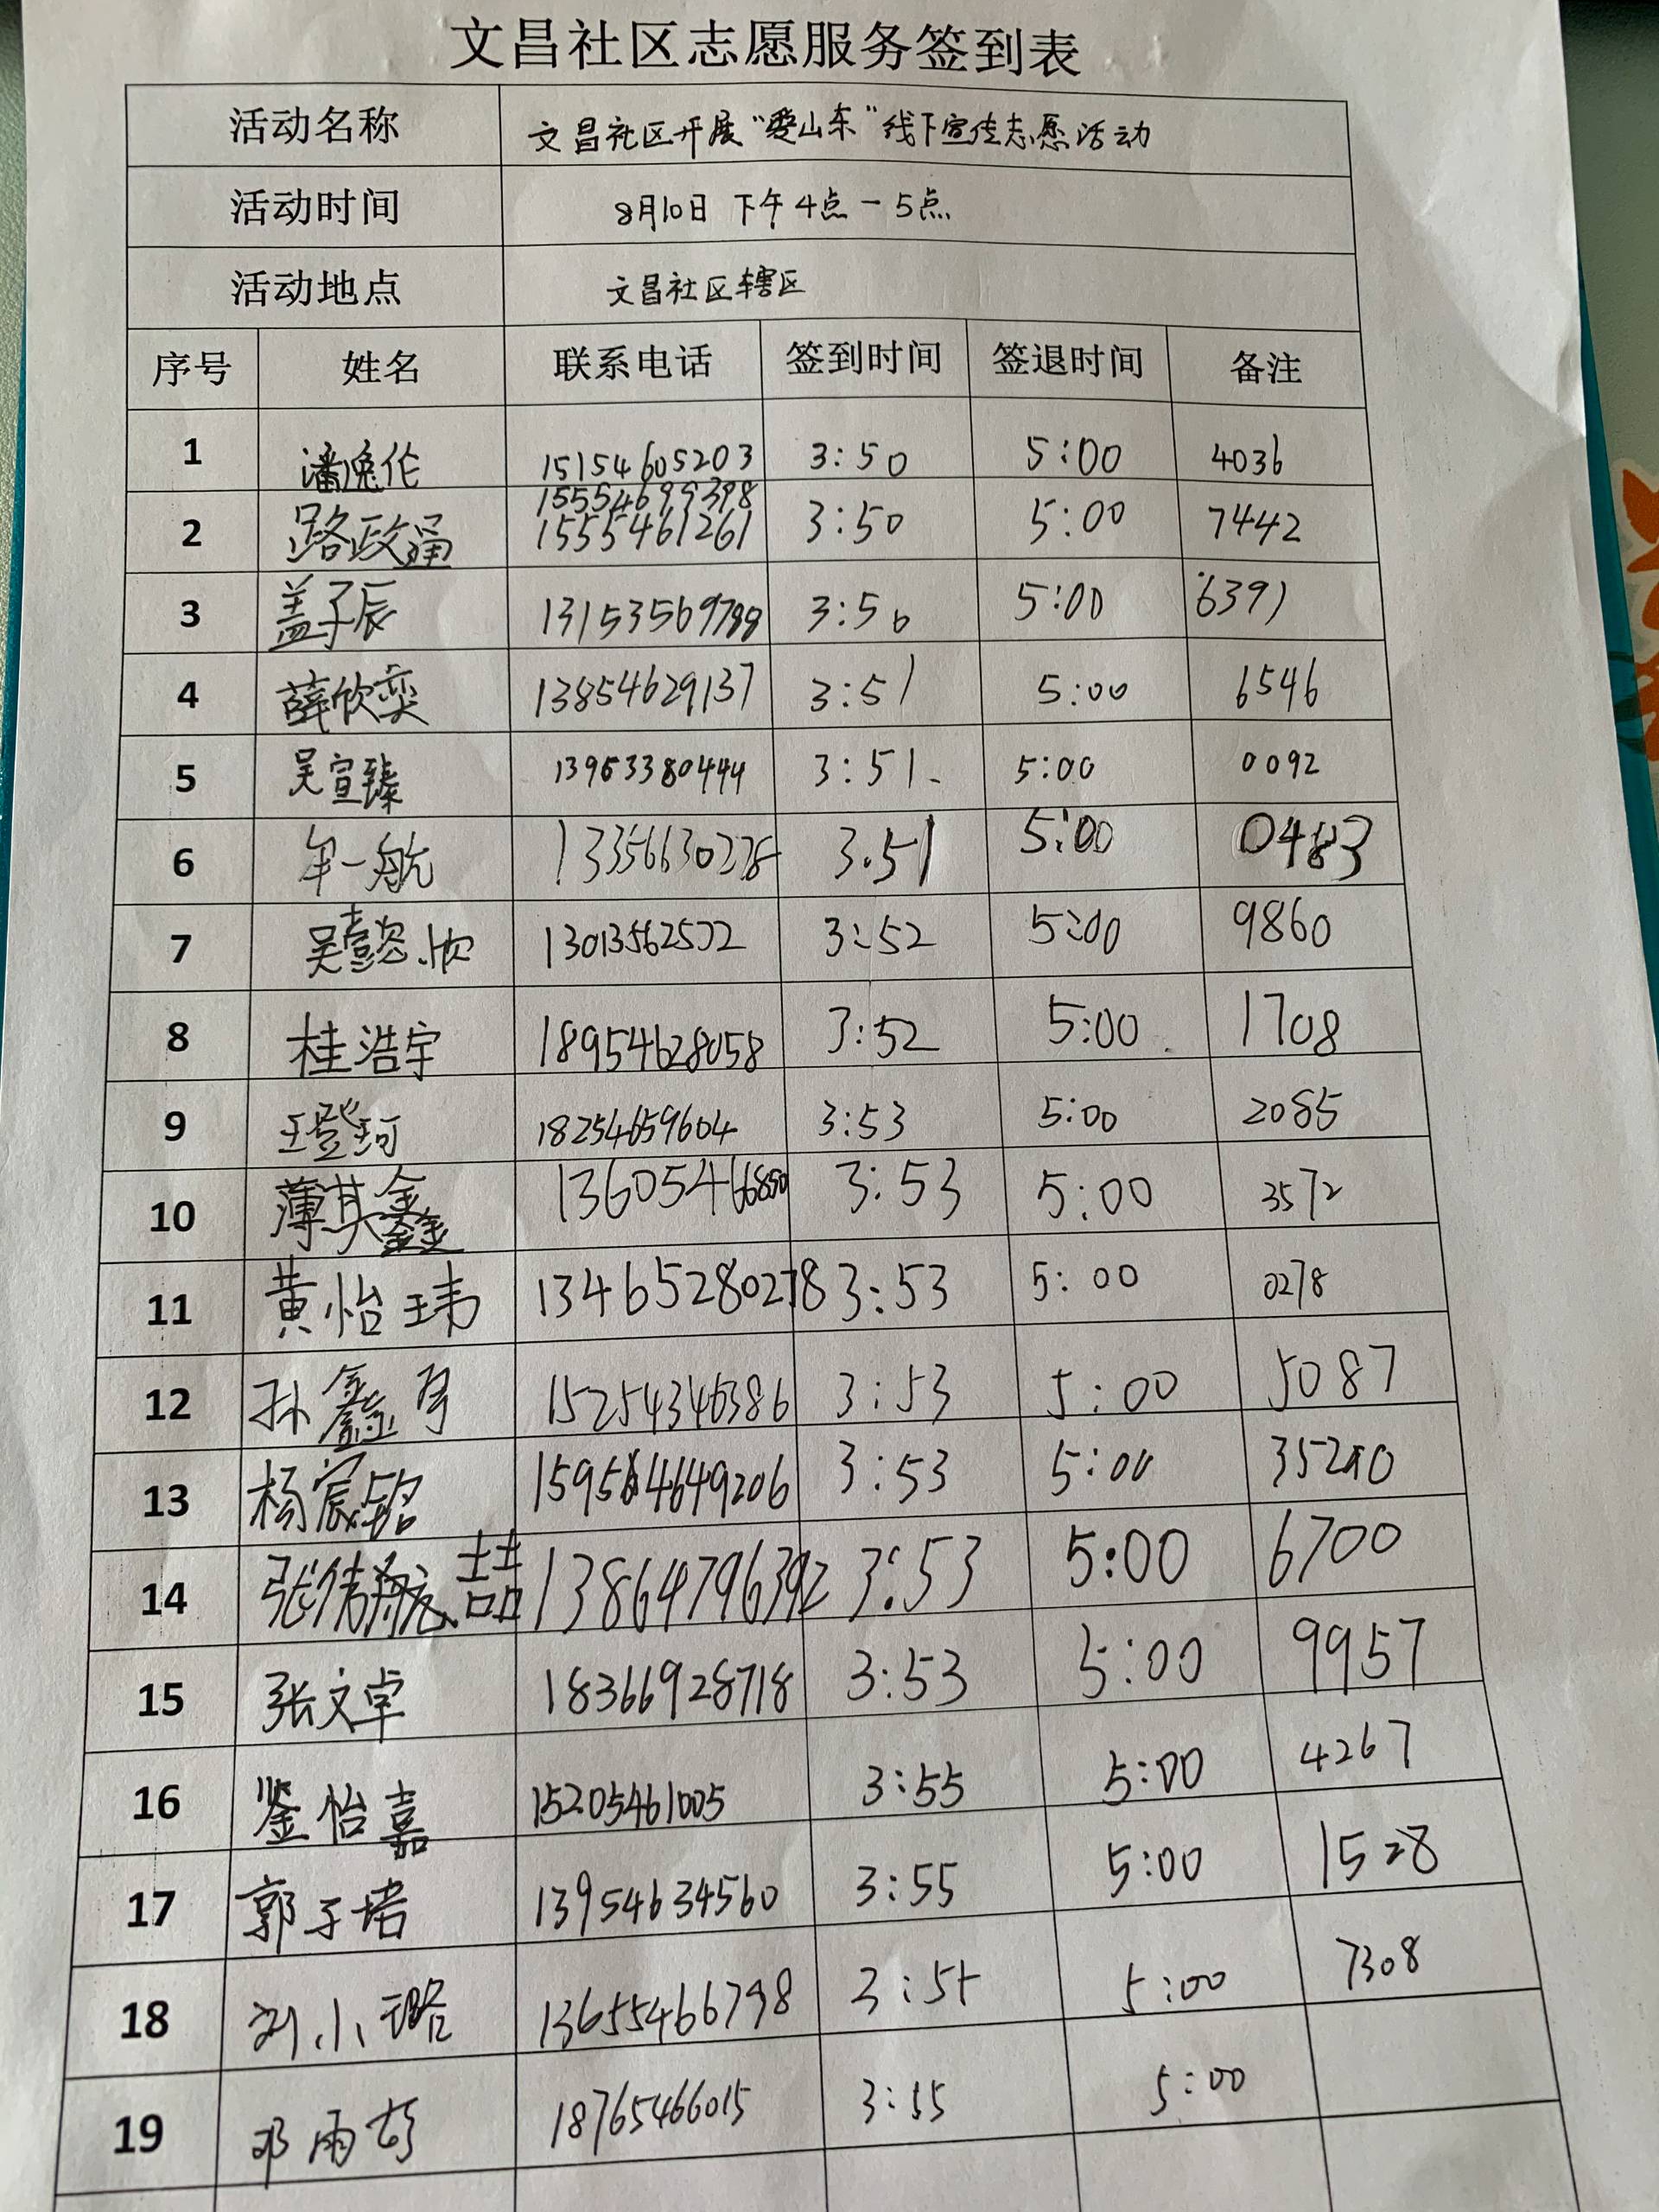 文昌社区志愿服务签到表
活动名称 文昌社区开展“爱山东”线下宣传志愿活动
活动时间 8月10日 下午4点-5点
活动地点 文昌社区辖区
序号 姓名 联系电话 签到时间 签退时间 备注
1 潘逸伦 15154605203 3:50 5:00 4036
15554699398
2 路政通 1555461261 3:50 5:00 7442
3 盖子辰 13153569788 3:50 5:00 6391
4 薛欣奕 13854629137 3:51 5:00 6546
5 吴宣臻 13963380444 3:51 5:00 0092
6 牟一航 13356630278 3:51 5:00 0483
7 吴懿欣 13013562572 3:52 5:00 9860
8 桂浩宇 18954628058 3:52 5:00 1708
9 王璒珂 18254659604 3:53 5:00 2085
10 薄其鑫 13605466850 3:53 5:00 3572
11 黄怡玮 13465280278 3:53 5:00 0278
12 孙鑫 15254346386 3:53 5:00 5087
13 杨宸铭 3:53 5:00
14 张倩 喆 13864796392 3:53 5:00 6700
15 张文卓 18366928718 3:53 5:00 9957
16 鉴怡嘉 15205461005 3:55 5:00 4267
17 郭子培 13954634560 3:55 5:00 1528
18 刘小璐 13655466798 3:55 5:00 7308
19 邓雨 18765466015 3:55 5:00